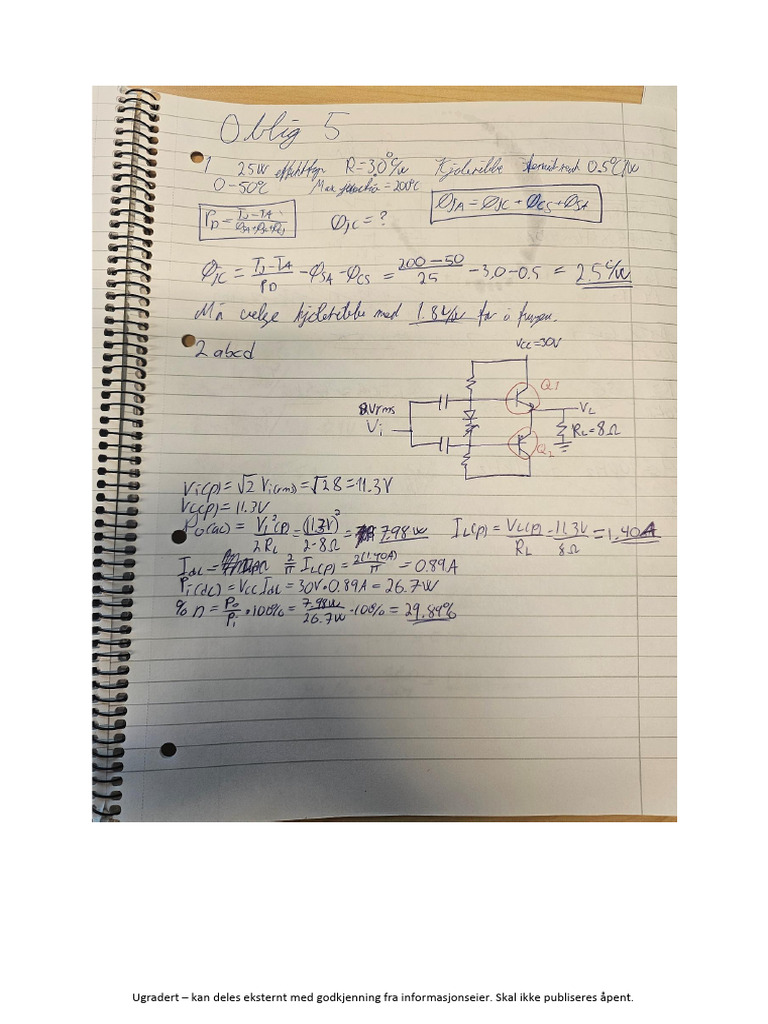 Oblig 5
1 25W effekttap R=3,0°C/W Kjøleribbe termisk mot 0.5°C/W
0-50°C Max = 200°C θJA = θJC + θCS + θSA
PD = TJ-TA / θSA+θCS+θJC θJC = ?
θJC = TJ-TA / PD - θSA - θCS = 200-50 / 25 - 3,0 - 0.5 = 2.5°C/W
Må velge kjøleribbe med 1.8°C/W for å fungere.
2 abcd
VCC=30V
Q1
8Vrms
Vi
VL
RL=8Ω
Q2
Vi(p) = √2 Vi(rms) = √2 8 = 11.3V
VL(p) = 11.3V
Po(ac) = VL²(p) / 2RL = (11.3V)² / 2·8Ω = 7.98W IL(p) = VL(p) / RL = 11.3V / 8Ω = 1.40A
Idc = 2/π IL(p) = 2(1.40A) / π = 0.89A
Pi(dc) = VCC Idc = 30V·0.89A = 26.7W
% n = Po / Pi · 100% = 7.98W / 26.7W · 100% = 29.89%
Ugradert – kan deles eksternt med godkjenning fra informasjonseier. Skal ikke publiseres åpent.